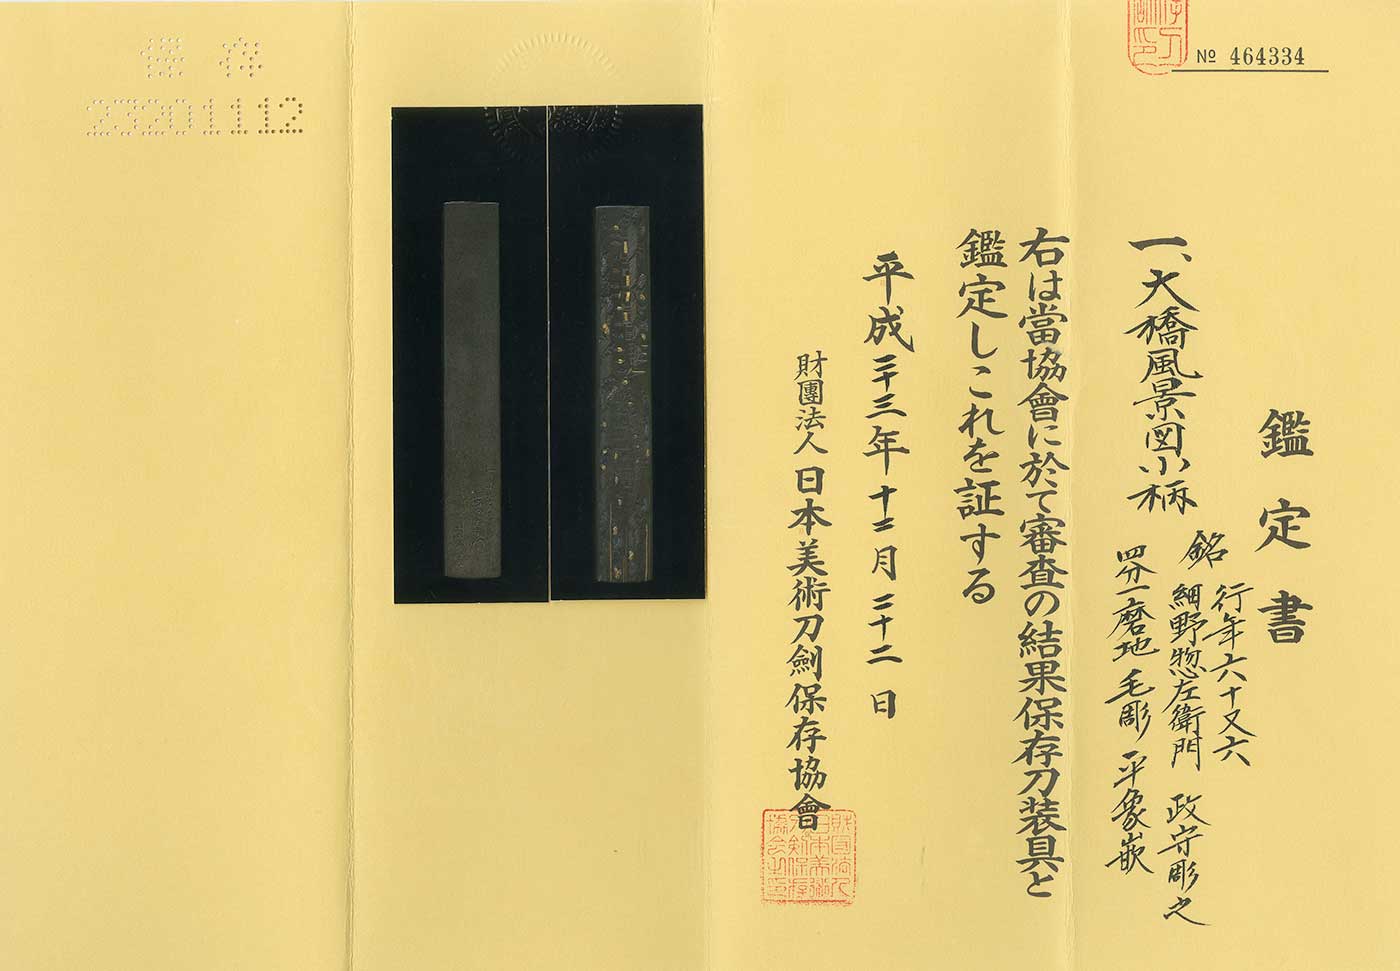 № 464334
鑑定書
一、大橋風景図小柄
銘 行年六十又六
細野惣左衛門 政守彫之
四分一磨地 毛彫 平象嵌
右は當協會に於て審査の結果保存刀装具と
鑑定しこれを証する
平成二十三年十二月二十二日
財團法人 日本美術刀劍保存協會
財團法人日本美術刀剣保存協会之印
保存
23201112